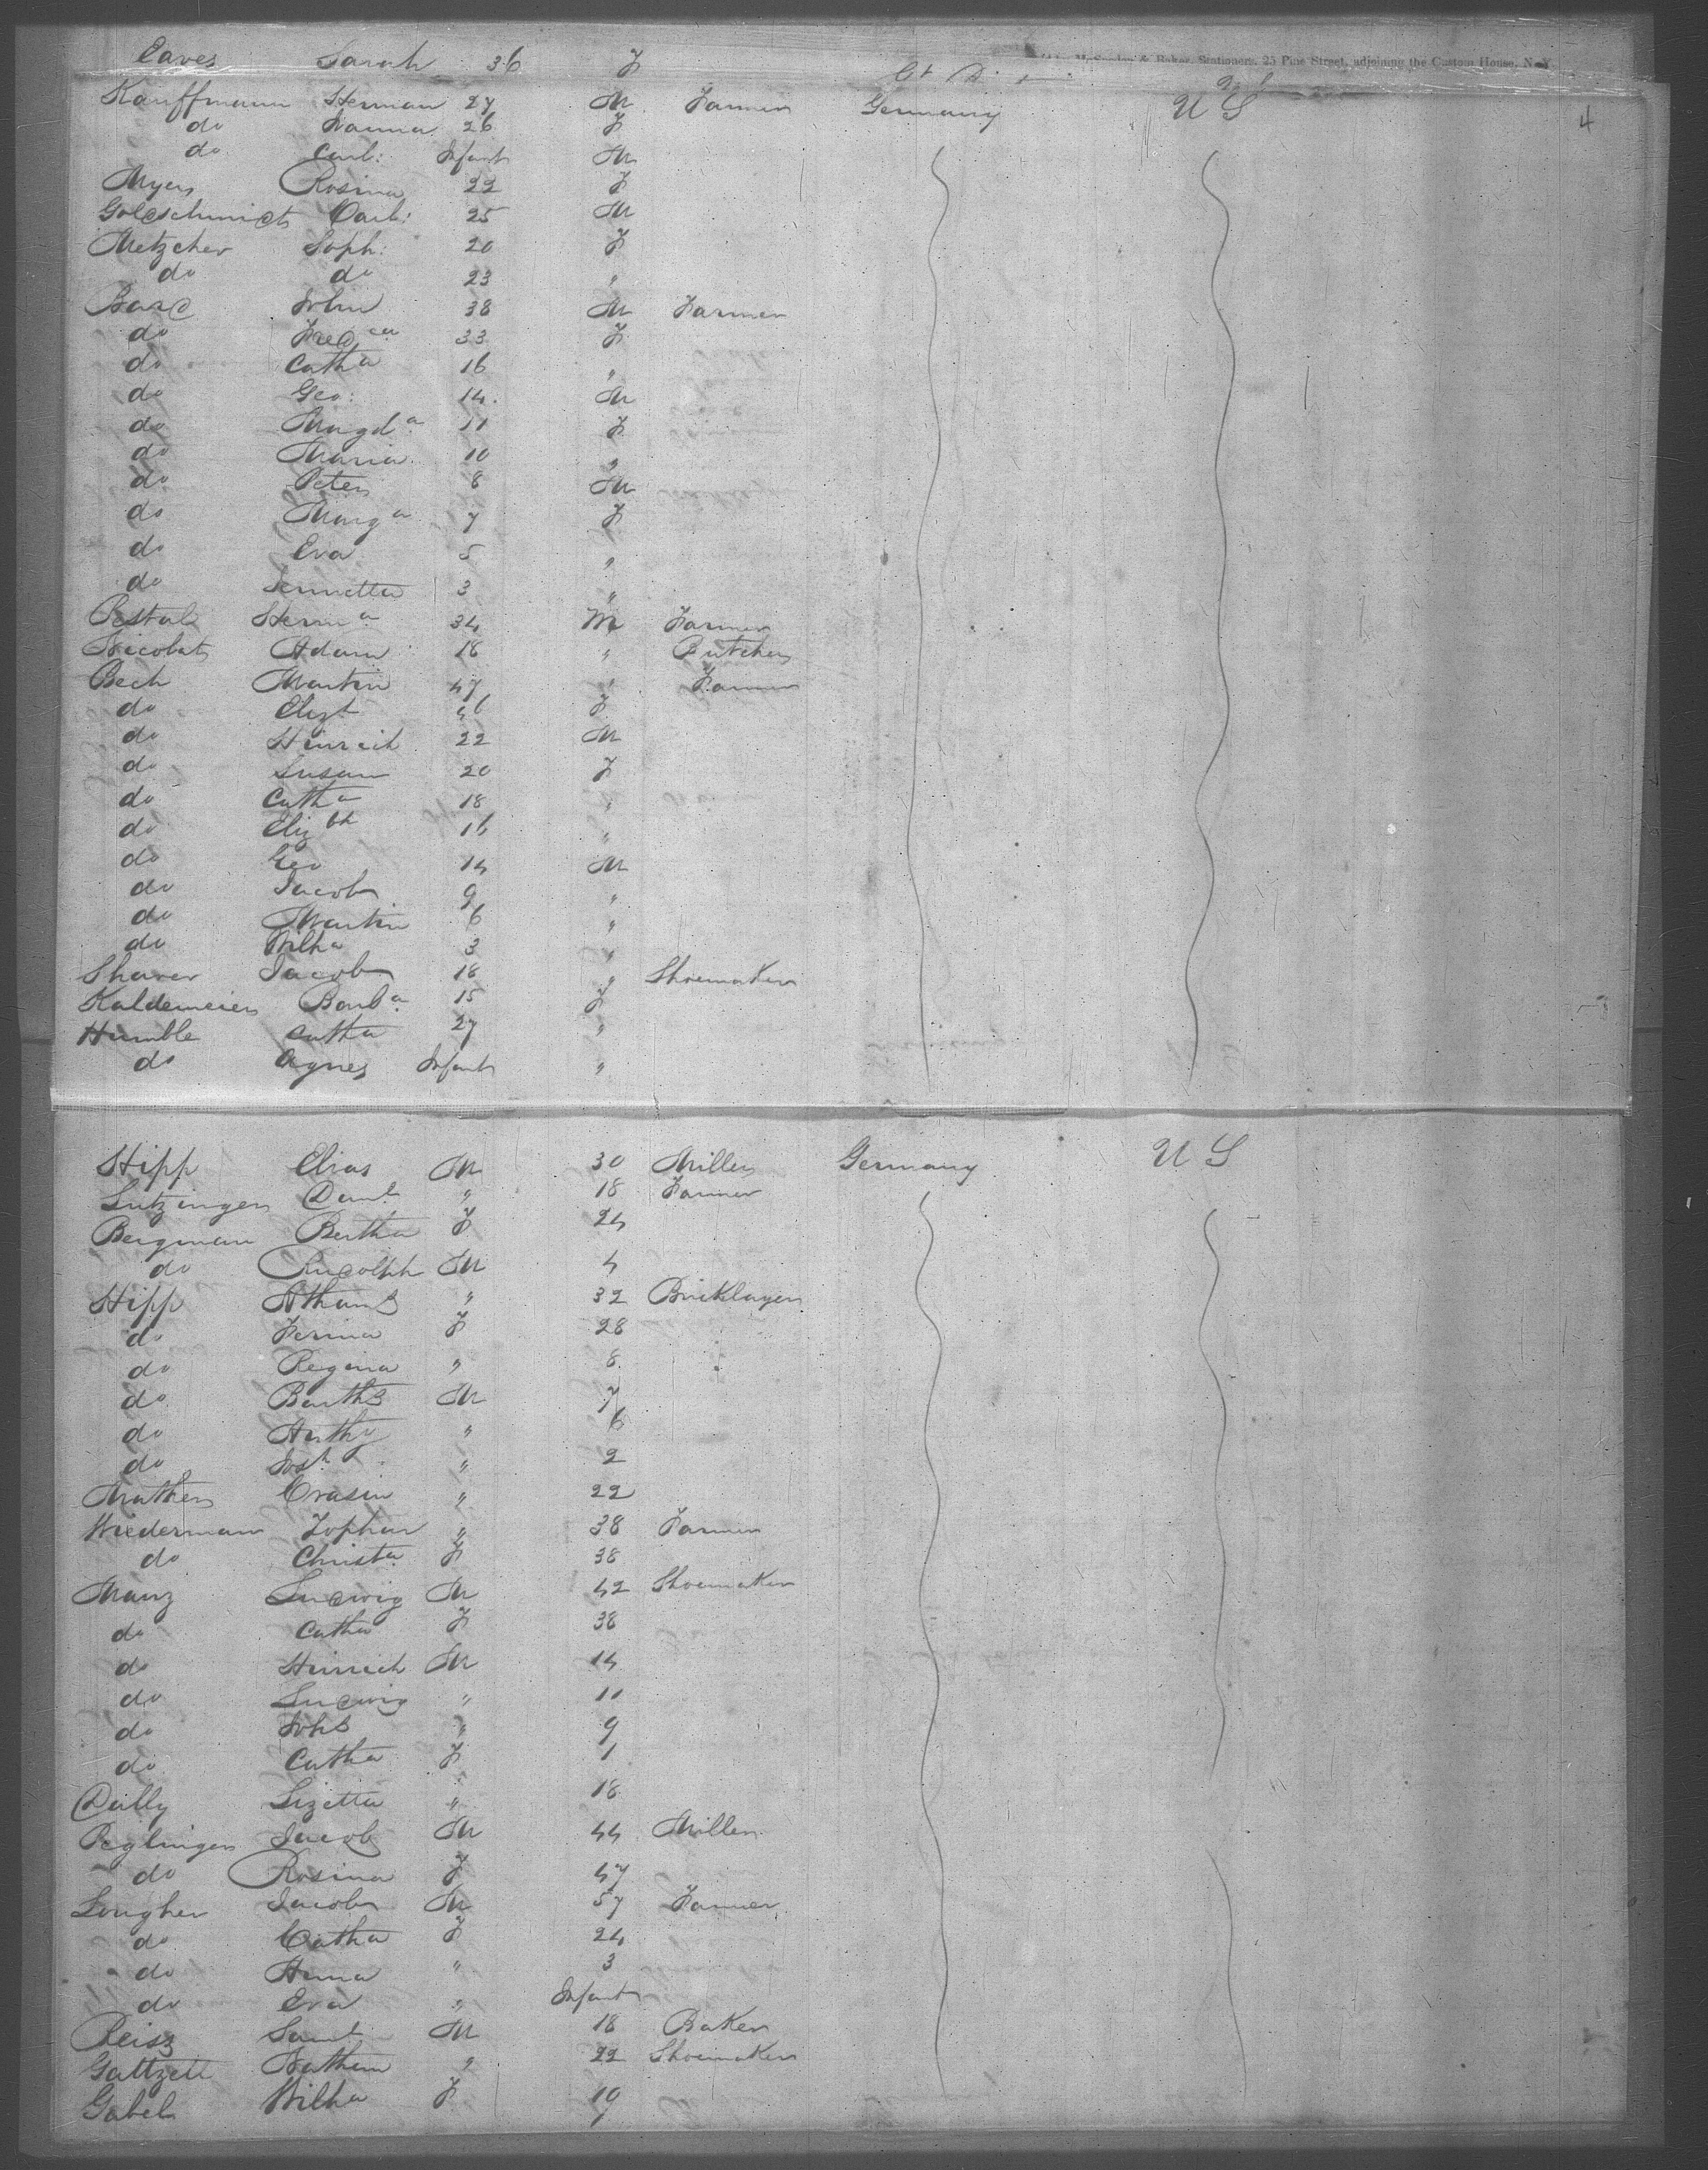 & Baker, Stationers, 25 Pine Street, adjoining the Custom House, N. Y.
Eaves Sarah 36 F Gt
Kauffmann Herman 27 M Farmer Germany U S 4
do Hanna 26 F
do Carl: Infant M
Myers Rosina 22 F
Goldschmidt Carl: 25 M
Metzcher Soph: 20 F
do do 23 "
John 38 M Farmer
do Fredca 33 F
do Catha 16 "
do Geo: 14. M
do Magda 11 F
do Maria 10 "
do Peter 8 M
do Marga 7 F
do Eva 5 "
do 3 "
Herma 34 M Farmer
Adam 18 " Butcher
Bech Martin 47 " Farmer
do Elizt 46 F
do Heinrich 22 M
do Susan 20 F
do Catha 18 "
do Elizbh 16 "
do Geo 14 M
do Jacob 9 "
do Martin 6 "
do Wilha 3 "
Shaver Jacob 18 " Shoemaker
Kaldemeier Barba 15 F
Humble Catha 27 "
do Agnes Infant "
Hipp Elias M 30 Miller Germany U S
Lutzinger Danl " 18 Farmer
Bergmann Bertha F 24
do Rudolph M 4
Hipp Athans " 32 Bricklayer
do Ferina F 28
do Regina " 8
do Barths M 7
do Anthy " 6
do Josh " 2
Mather Crasin " 22
Wiedermann Zophar " 38 Farmer
do Christa F 38
Manz Ludwig M 42 Shoemaker
do Catha F 38
do Heinrich M 14
do Ludwig " 11
do Johs " 9
do Catha F 1
Dailly Lizetta " 18
Peglinger Jacob M 44 Miller
do Rosina F 47
Lougher Jacob M 57 Farmer
do Catha F 24
do Anna " 3
do Eva " Infant
Reisz Saml M 18 Baker
Gattzell Nathan " 22 Shoemaker
Gabel Wilha F 19